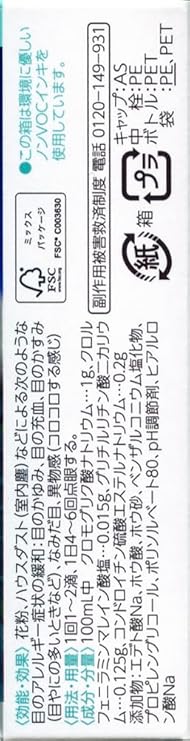 ●この箱は環境に優しい
ノンVOCインキを
使用しています。
キャップ:AS
中栓:PE
ボトル:PET
袋:PE、PET
プラ
紙
箱
副作用被害救済制度 電話 0120-149-931
ミックス
パッケージ
FSC
www.fsc.org
FSC® C003630
《効能・効果》 花粉、ハウスダスト(室内塵)などによる次のような
目のアレルギー症状の緩和:目のかゆみ、目の充血、目のかすみ
(目やにの多いときなど)、なみだ目、異物感(コロコロする感じ)
《用法・用量》 1回1~2滴、1日4~6回点眼する。
《成分・分量》 100mL中 クロモグリク酸ナトリウム…1g、クロル
フェニラミンマレイン酸塩…0.015g、グリチルリチン酸二カリウ
ム…0.125g、コンドロイチン硫酸エステルナトリウム…0.2g
添加物:エデト酸Na、ホウ酸、ホウ砂、ベンザルコニウム塩化物、
プロピレングリコール、ポリソルベート80、pH調節剤、ヒアルロ
ン酸Na